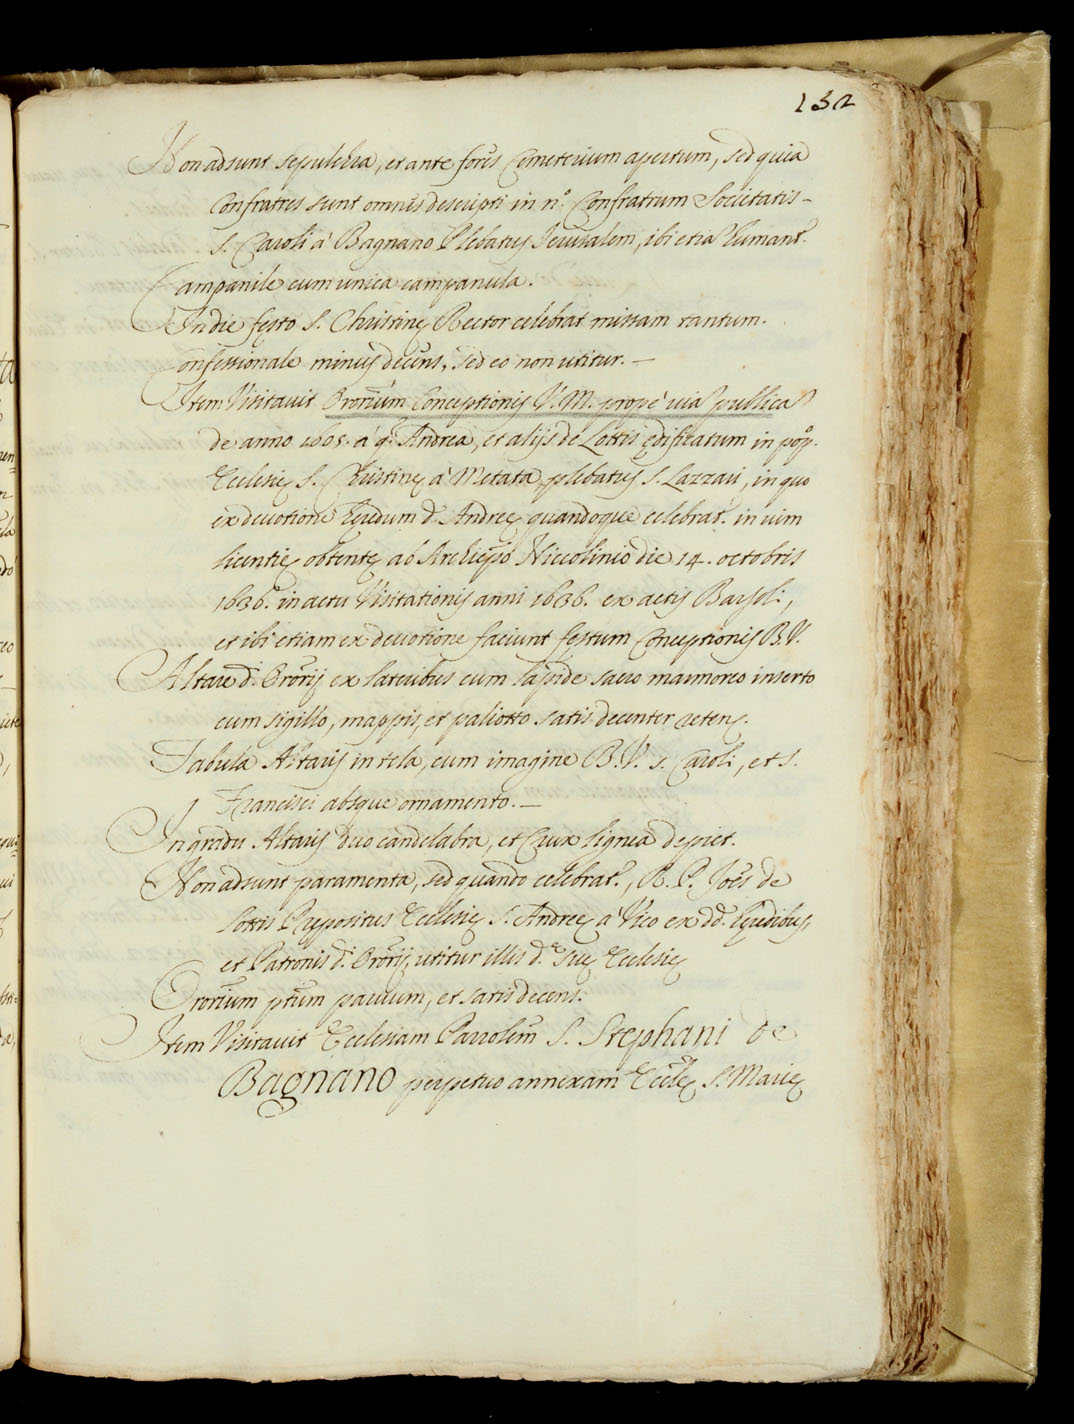 132
Non adsunt sepulchra, et ante fores Cemeterium apertum, sed quia
Confratres sunt omnes descripti in n.º Confratrum Societatis -
S. Caroli à Bagnano Plebatus Jerusalem, ibi etiã humant.r
Campanile cum unica campanula.
In die festo S. Christinę Rector celebrat missam tantum.
Confessionale minus decens, sed eo non utitur. -
Item Visitavit Oratorium Conceptionis V. M. propè viã publicã
de anno 1605. à q. Andrea, et alijs de Lottis ędificatum in pop.
Ecclesię S. Christinę à Metata plebatus S. Lazzari, in quo
ex devotione hęredum d. Andreę quandoque celebrat.r in vim
licentię obtentę ab Archiepo Niccolinio die 14. octobris
1636. in actu Visitationis anni 1636. ex actis Barsol:,
et ibi etiam ex devotione faciunt festum Conceptionis B. V.
Altare d: Oratorij ex lateribus cum lapide sacro marmoreo inserto
cum sigillo, mappis, et paliotto satis decenter retent.
Tabula Altaris in tela, cum imagine B. V. s. Caroli, et s.
Francisci absque ornamento. -
In gradu Altaris duo candelabra, et Crux lignea depict.
Non adsunt paramenta, sed quando celebrat.r, R. P. Joes de
Lottis Prępositus Ecclesię S. Andreę à Vico ex dd. hęredibus,
et Patronis d: Oratorij utitur illis d. suę Ecclesię
Oratorium ptum parvum, et satis decens.
Item Visitavit Ecclesiam Parrolem S. Stephani de
Bagnano perpetuo annexam Eccłę S. Marię